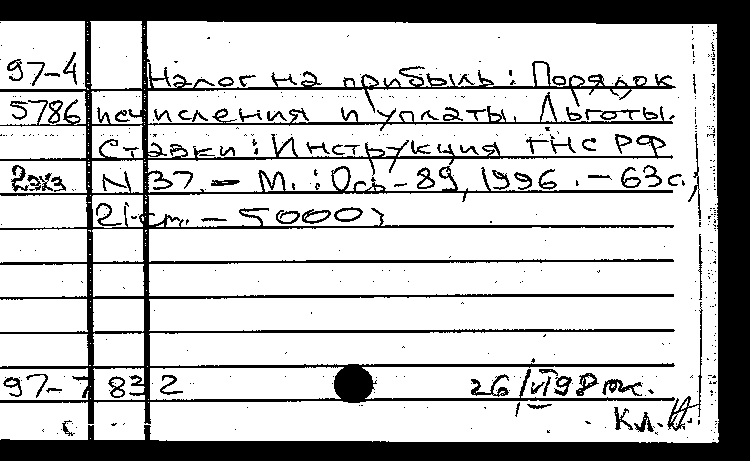 97-4 Налог на прибыль: Порядок
5786 исчисления и уплаты. Льготы.
Ставки: Инструкция ГНС РФ
2экз N 37. - М.: Ось-89, 1996. - 63с.;
21 см. - 5000э
97-7832 26/VI 98
Кл.
с